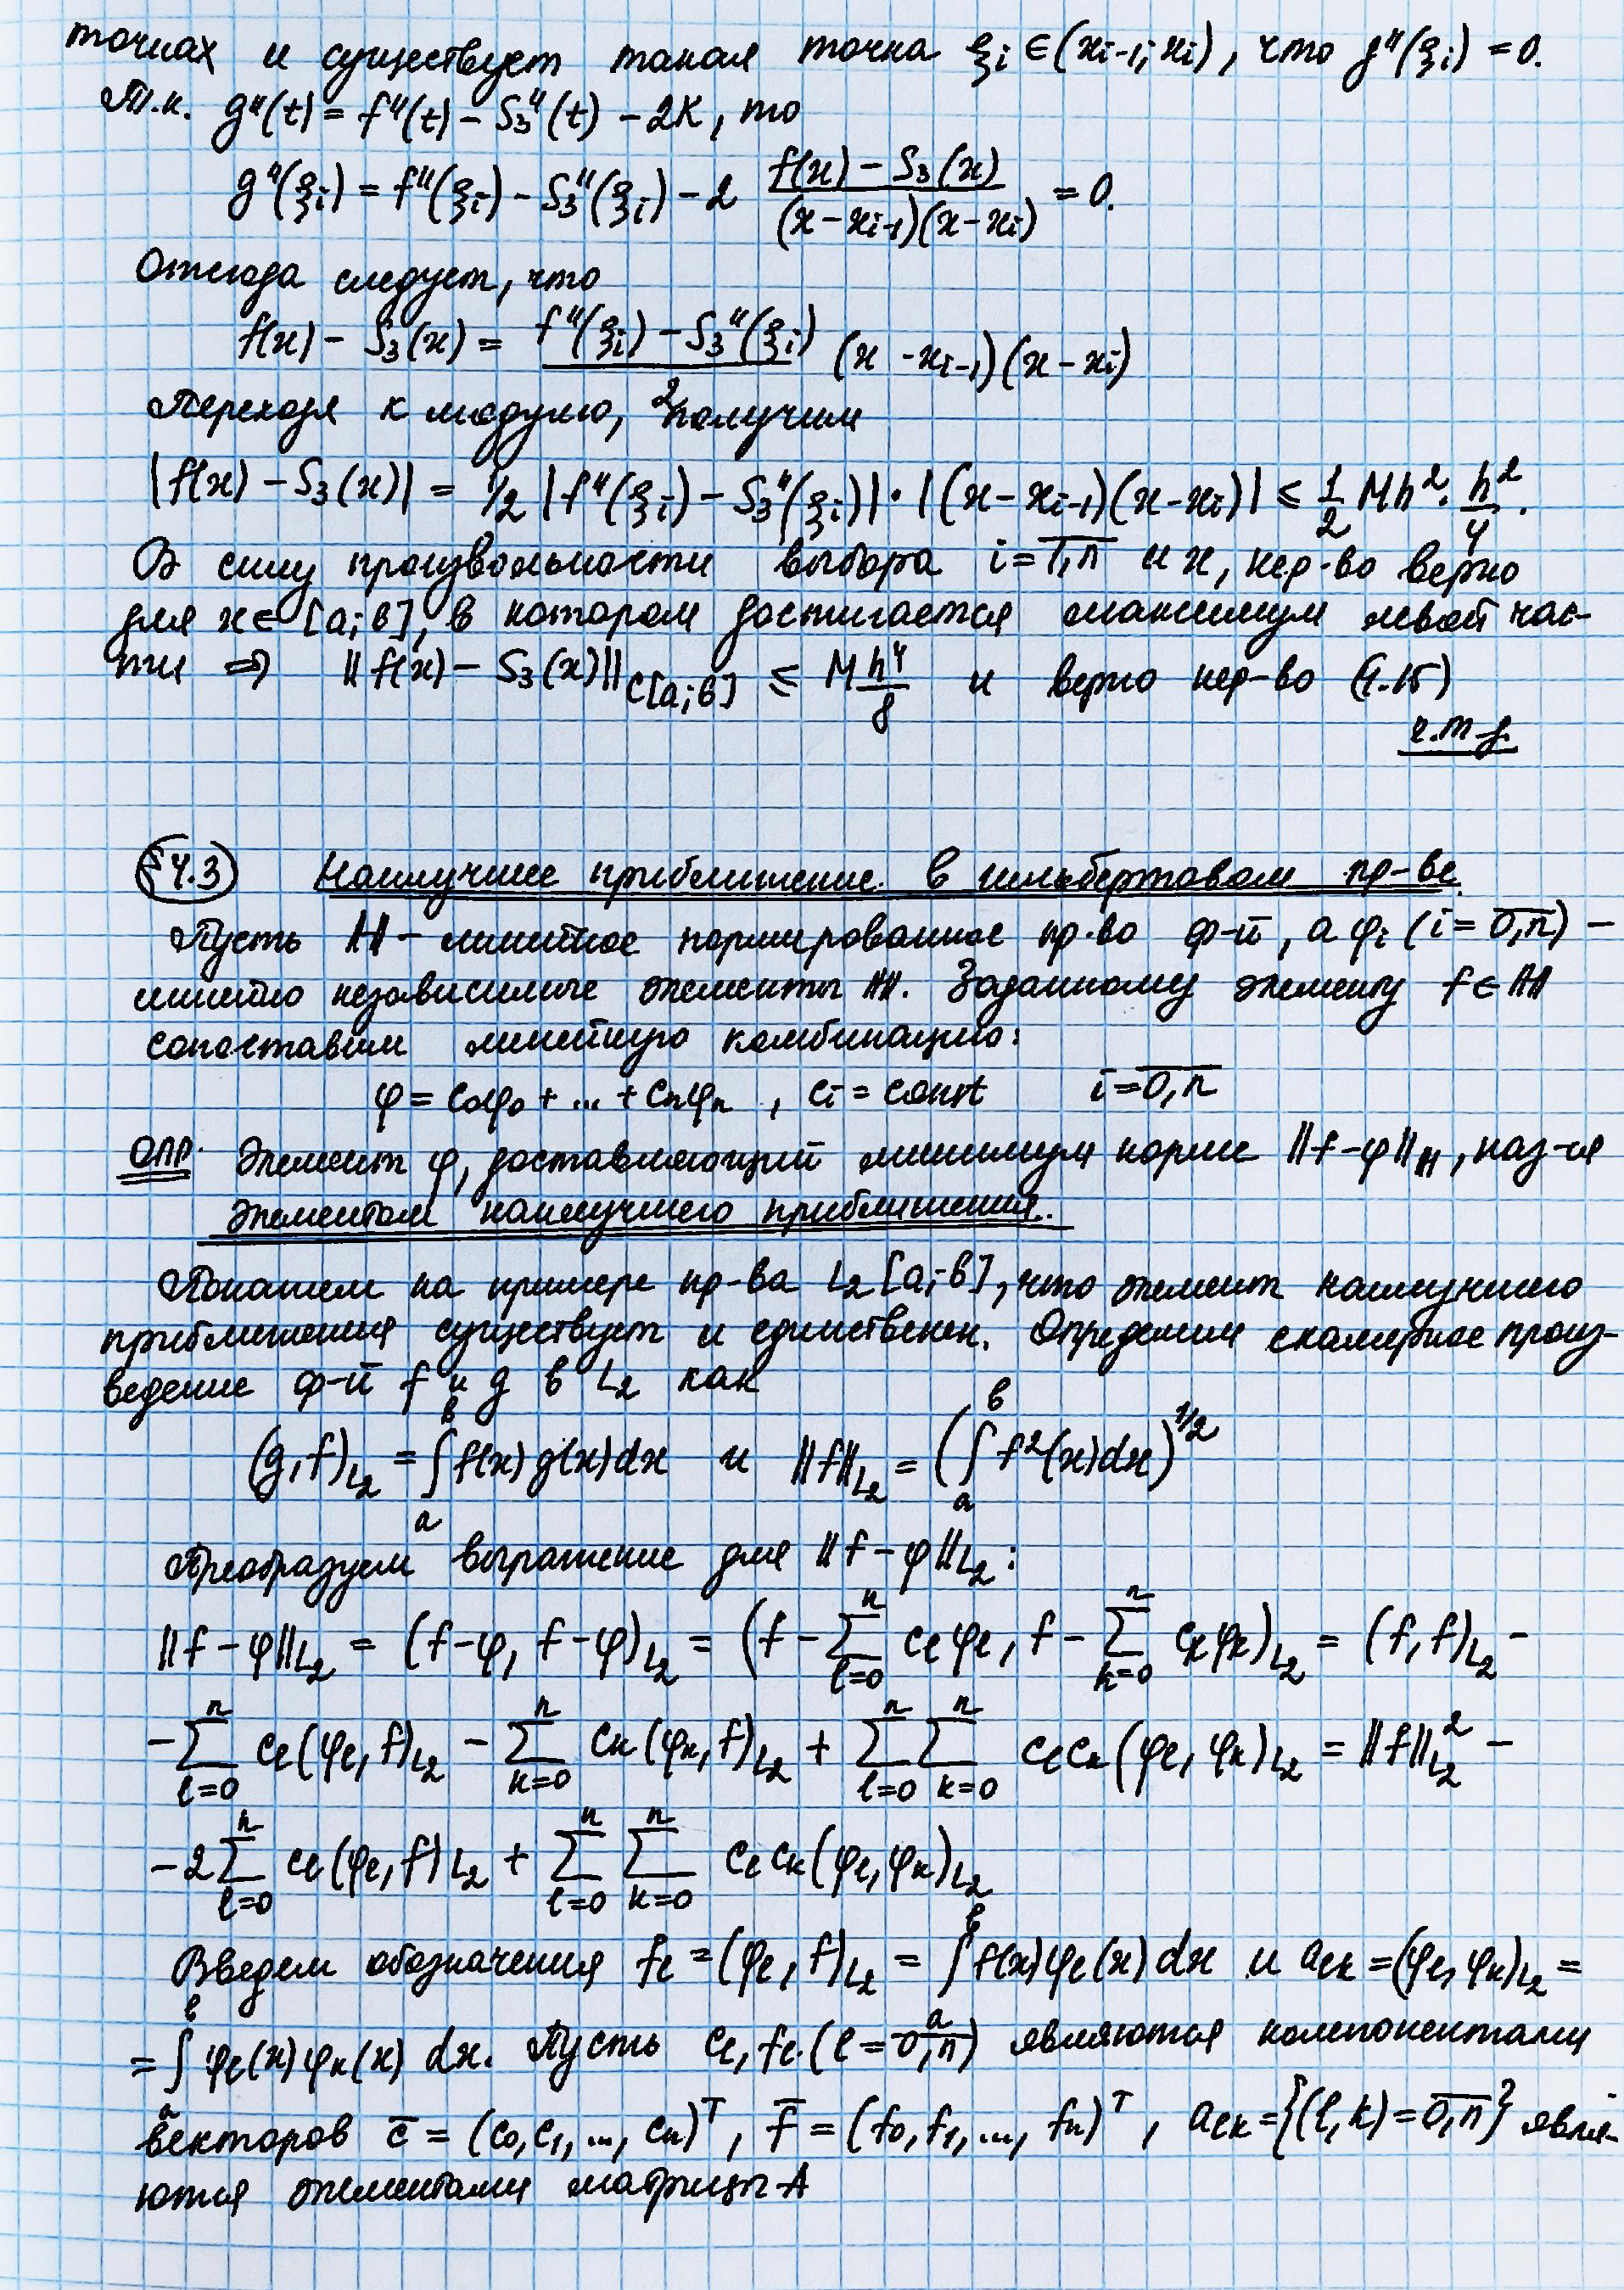 точках и существует такая точка ξi ∈ (xi-1; xi), что g''(ξi) = 0.
Т.к. g''(t) = f''(t) − S3''(t) − 2K, то
g''(ξi) = f''(ξi) − S3''(ξi) − 2 (f(x) − S3(x)) / ((x − xi-1)(x − xi)) = 0.
Отсюда следует, что
f(x) − S3(x) = (f''(ξi) − S3''(ξi)) / 2 (x − xi-1)(x − xi)
Переходя к модулю, получим
|f(x) − S3(x)| = 1/2 |f''(ξi) − S3''(ξi)| · |(x − xi-1)(x − xi)| ≤ 1/2 Mh² · h²/4.
В силу произвольности выбора i = 1,n и x, нер-во верно
для x ∈ [a; в], в котором достигается максимум левой час-
ти ⇒ ‖f(x) − S3(x)‖C[a;в] ≤ M h⁴/8 и верно нер-во (4.15)
ч.т.д.
§4.3 Наилучшее приближение в гильбертовом пр-ве.
Пусть H – линейное нормированное пр-во ф-й, а φi (i = 0,n) –
линейно независимые элементы H. Заданному элементу f ∈ H
сопоставим линейную комбинацию:
φ = c0φ0 + ... + cnφn , ci = const i = 0,n
Опр. Элемент φ, доставляющий минимум норме ‖f − φ‖H, наз-ся
элементом наилучшего приближения.
Покажем на примере пр-ва L2[a; в], что элемент наилучшего
приближения существует и единственен. Определим скалярное произ-
ведение ф-й f и g в L2 как
(g, f)L2 = ∫ₐᵇ f(x) g(x) dx и ‖f‖L2 = (∫ₐᵇ f²(x) dx)^1/2
Преобразуем выражение для ‖f − φ‖L2:
‖f − φ‖L2 = (f − φ, f − φ)L2 = (f − ∑(l=0..n) cl φl, f − ∑(k=0..n) ck φk)L2 = (f, f)L2 −
− ∑(l=0..n) cl (φl, f)L2 − ∑(k=0..n) ck (φk, f)L2 + ∑(l=0..n) ∑(k=0..n) cl ck (φl, φk)L2 = ‖f‖²L2 −
− 2 ∑(l=0..n) cl (φl, f)L2 + ∑(l=0..n) ∑(k=0..n) cl ck (φl, φk)L2
Введем обозначения fl = (φl, f)L2 = ∫ₐᵇ f(x) φl(x) dx и alk = (φl, φk)L2 =
= ∫ₐᵇ φl(x) φk(x) dx. Пусть cl, fl (l = 0,n) являются компонентами
векторов c̄ = (c0, c1, ..., cn)ᵀ, f̄ = (f0, f1, ..., fn)ᵀ, alk = {(l, k) = 0,n} явля-
ются элементами матрицы A